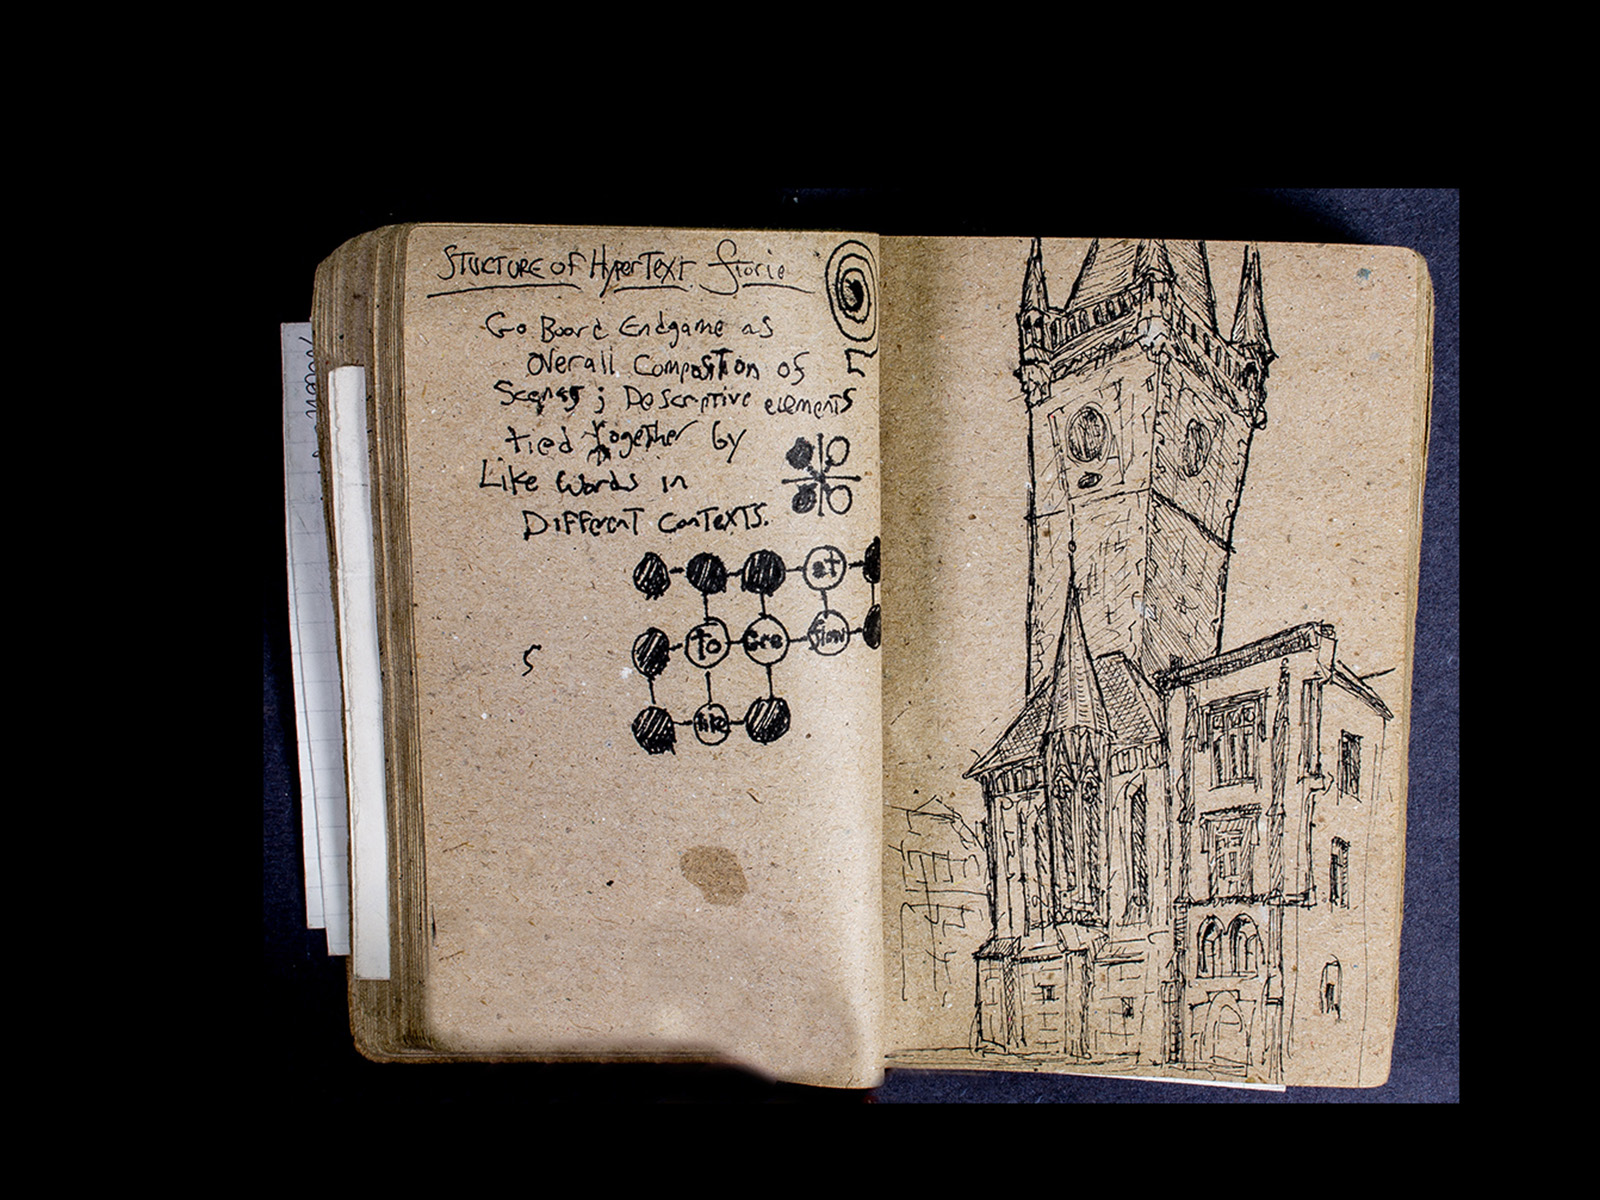 STUCTURE OF HYPERTEXT Storie
Go Board Endgame as
Overall Composition of
Scenes ; Descriptive elements
tied together by
Like words in
DIFFERENT CONTEXTS.
at
to are
5